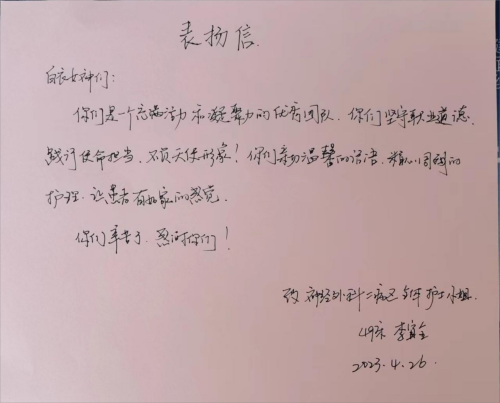 表扬信
白衣女神们:
你们是一个充满活力和凝聚力的优秀团队。你们坚守职业道德,
践行使命担当,不负天使形象!你们亲切温馨的话语,精心周到的
护理,让患者有如家的感觉。
你们辛苦了,感谢你们!
致神经外科二病区全体护士小姐
49床 李宜全
2023.4.26